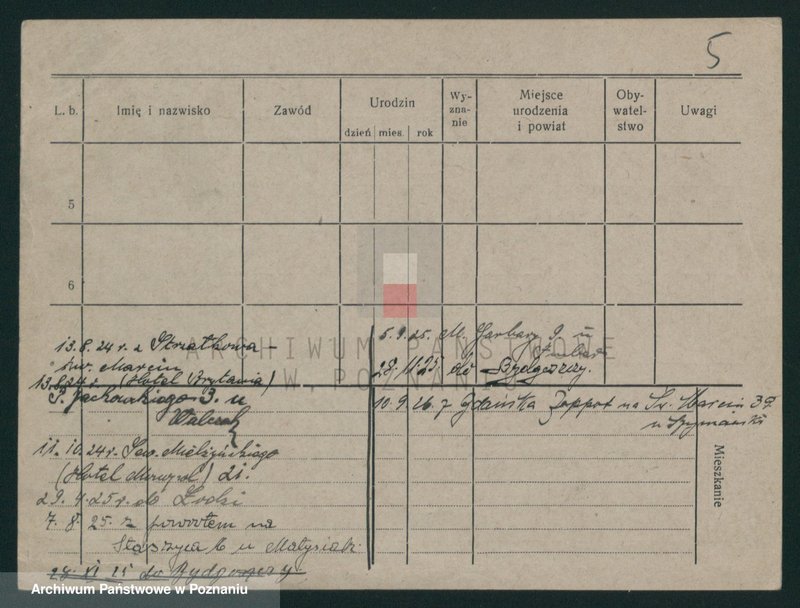 5
L. b.
Imię i nazwisko
Zawód
Urodzin
dzień mies. rok
Wy-
zna-
nie
Miejsce
urodzenia
i powiat
Oby-
watel-
stwo
Uwagi
5
6
ARCHIWUM PAŃSTWOWE
W POZNANIU
13.8.24 r. z
św. Marcin
13.8.24 r. (Hotel Brytania)
P. Jackowskiego 3. u
11. 10. 24 r. Sew. Mielżyńskiego
(Hotel Metropol) 21.
29. 4. 25 r. do Łodzi
7. 8. 25. z powrotem na
Staszyca 6 u Matysiak
28 XI 25 do Bydgoszczy.
5.9.25. M. Garbary 9. u
28. 11. 25 do Bydgoszczy.
10. 9. 26. z Gdańska Zoppot na Św. Marcin 39
u Szymański
Mieszkanie
Archiwum Państwowe w Poznaniu